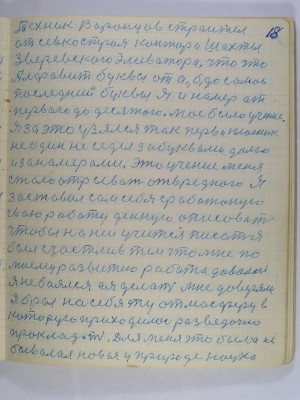 18
Техник Воронцов строител
от Севкостром контора Шахты
Зверевского Элеватора, что это
Алфавит буквы от а, б, до самой
последний буквы Я. и намер от
первого до десятого. мое было учение.
Я за это узялся так перво
не один не сидел за буквами долго
и за намерами. Это учение меня
стало от вредного Я
заставил сам себя рабочую
свою работу денную описовать
чтобы на ней учится писать я
был счастлив тем что мне по
моему развитию работа давалась
Я не боялся ея делать мне доверяли
Я брал на себя ту атмосферу в
которую приходилос разведочно
Для меня это была не
бывалая новая у природе наука